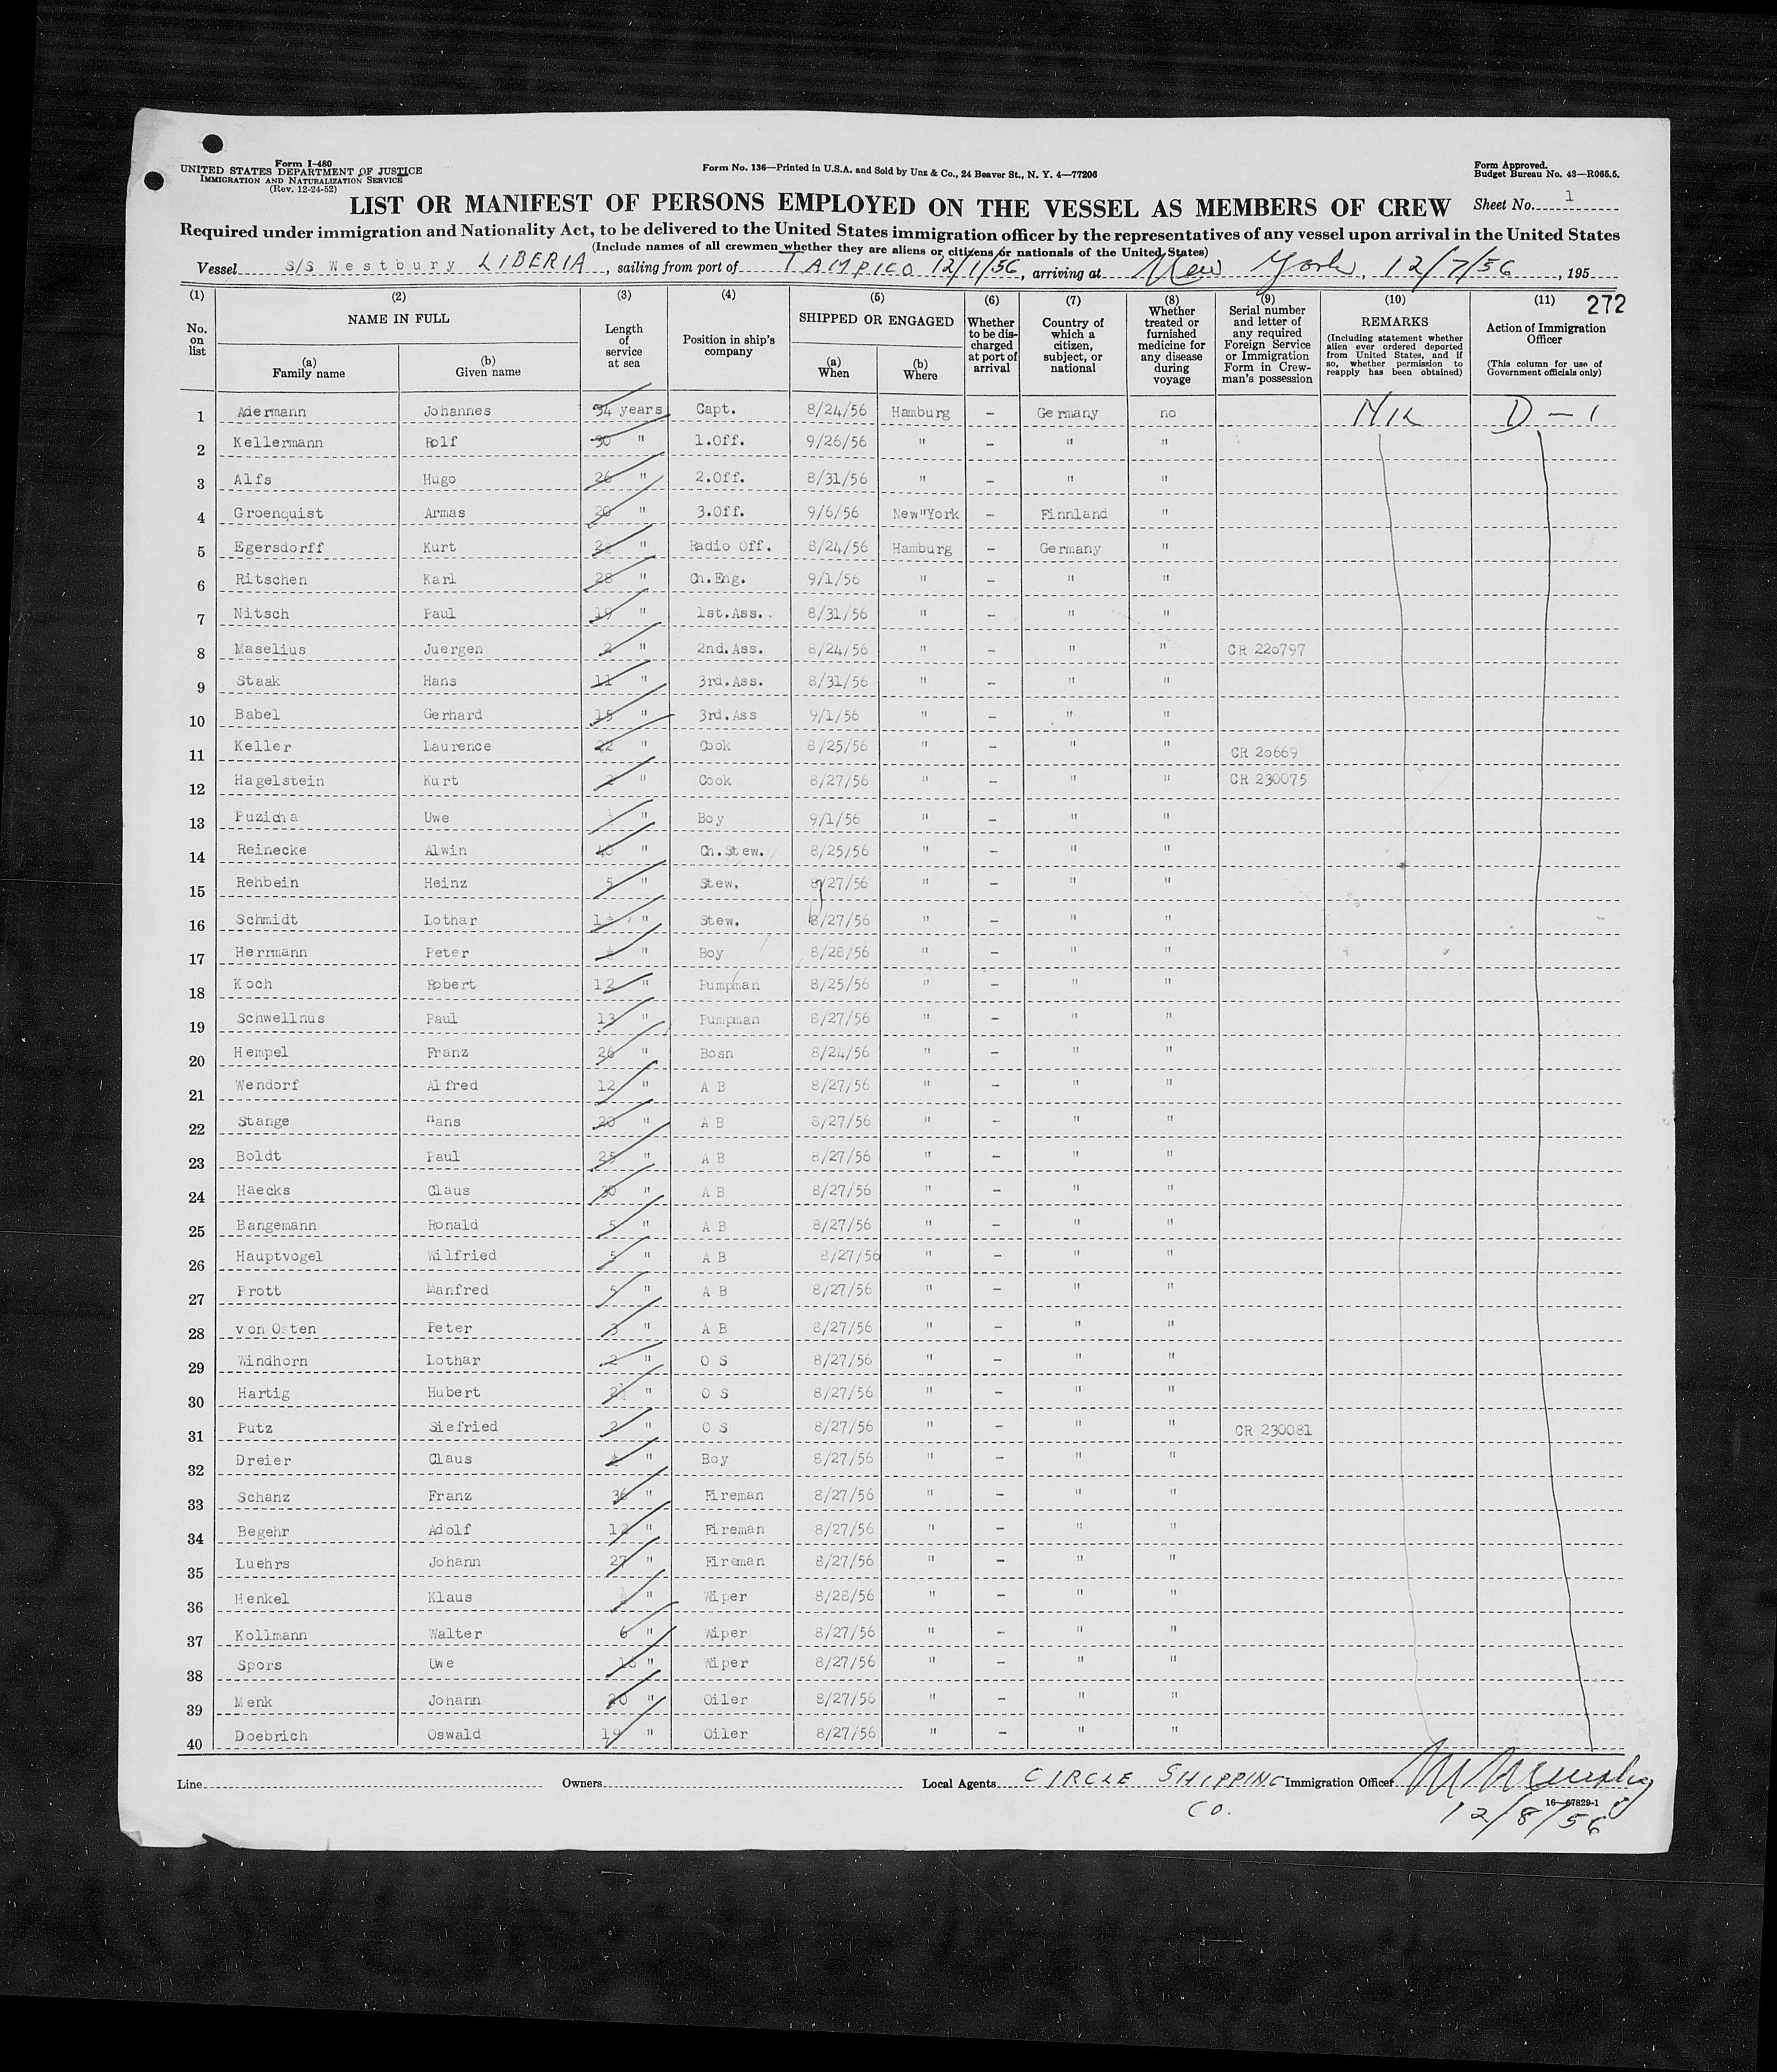 Form I-480
UNITED STATES DEPARTMENT OF JUSTICE
IMMIGRATION AND NATURALIZATION SERVICE
(Rev. 12-24-52)
Form No. 136—Printed in U.S.A. and Sold by Unz & Co., 24 Beaver St., N. Y. 4—77206
Form Approved.
Budget Bureau No. 43—R065.5.
LIST OR MANIFEST OF PERSONS EMPLOYED ON THE VESSEL AS MEMBERS OF CREW
Sheet No. 1
Required under immigration and Nationality Act, to be delivered to the United States immigration officer by the representatives of any vessel upon arrival in the United States
(Include names of all crewmen whether they are aliens or citizens or nationals of the United States)
Vessel S/S Westbury LIBERIA, sailing from port of TAMPICO 12/1/56, arriving at New York, 12/7/56, 195
272
(1) No. on list
(2) NAME IN FULL (a) Family name (b) Given name
(3) Length of service at sea
(4) Position in ship's company
(5) SHIPPED OR ENGAGED (a) When (b) Where
(6) Whether to be discharged at port of arrival
(7) Country of which a citizen, subject, or national
(8) Whether treated or furnished medicine for any disease during voyage
(9) Serial number and letter of any required Foreign Service or Immigration Form in Crewman's possession
(10) REMARKS (Including statement whether alien ever ordered deported from United States, and if so, whether permission to reapply has been obtained)
(11) Action of Immigration Officer (This column for use of Government officials only)
1 Adermann Johannes 34 years Capt. 8/24/56 Hamburg - Germany no D — 1
2 Kellermann Rolf 30 " 1.Off. 9/26/56 " - " "
3 Alfs Hugo 26 " 2.Off. 8/31/56 " - " "
4 Groenquist Armas 20 " 3.Off. 9/6/56 New"York - Finnland "
5 Egersdorff Kurt " Radio Off. 8/24/56 Hamburg - Germany "
6 Ritschen Karl 28 " Ch.Eng. 9/1/56 " - " "
7 Nitsch Paul 19 " 1st.Ass. 8/31/56 " - " "
8 Maselius Juergen 2 " 2nd.Ass. 8/24/56 " - " " CR 220797
9 Staak Hans 11 " 3rd.Ass. 8/31/56 " - " "
10 Babel Gerhard 15 " 3rd.Ass 9/1/56 " - " "
11 Keller Laurence 22 " Cook 8/25/56 " - " " CR 20669
12 Hagelstein Kurt 2 " Cook 8/27/56 " - " " CR 230075
13 Puzicha Uwe " Boy 9/1/56 " - " "
14 Reinecke Alwin 40 " Ch.Stew. 8/25/56 " - " "
15 Rehbein Heinz 5 " Stew. 8/27/56 " - " "
16 Schmidt Lothar " Stew. 8/27/56 " - " "
17 Herrmann Peter " Boy 8/28/56 " - " "
18 Koch Robert 12 " Pumpman 8/25/56 " - " "
19 Schwellnus Paul 13 " Pumpman 8/27/56 " - " "
20 Hempel Franz 26 " Bosn 8/24/56 " - " "
21 Wendorf Alfred 12 " A B 8/27/56 " - " "
22 Stange Hans 20 " A B 8/27/56 " - " "
23 Boldt Paul 25 " A B 8/27/56 " - " "
24 Haecks Claus 30 " A B 8/27/56 " - " "
25 Bangemann Ronald 5 " A B 8/27/56 " - " "
26 Hauptvogel Wilfried 5 " A B 8/27/56 " - " "
27 Prott Manfred 5 " A B 8/27/56 " - " "
28 von Osten Peter 3 " A B 8/27/56 " - " "
29 Windhorn Lothar 2 " O S 8/27/56 " - " "
30 Hartig Hubert " O S 8/27/56 " - " "
31 Putz Siefried 2 " O S 8/27/56 " - " " CR 230081
32 Dreier Claus " Boy 8/27/56 " - " "
33 Schanz Franz 36 " Fireman 8/27/56 " - " "
34 Begehr Adolf 12 " Fireman 8/27/56 " - " "
35 Luehrs Johann 27 " Fireman 8/27/56 " - " "
36 Henkel Klaus " Wiper 8/28/56 " - " "
37 Kollmann Walter 6 " Wiper 8/27/56 " - " "
38 Spors Uwe " Wiper 8/27/56 " - " "
39 Menk Johann 20 " Oiler 8/27/56 " - " "
40 Doebrich Oswald 19 " Oiler 8/27/56 " - " "
Line Owners Local Agents CIRCLE SHIPPING CO. Immigration Officer
16—67829-1
12/8/56